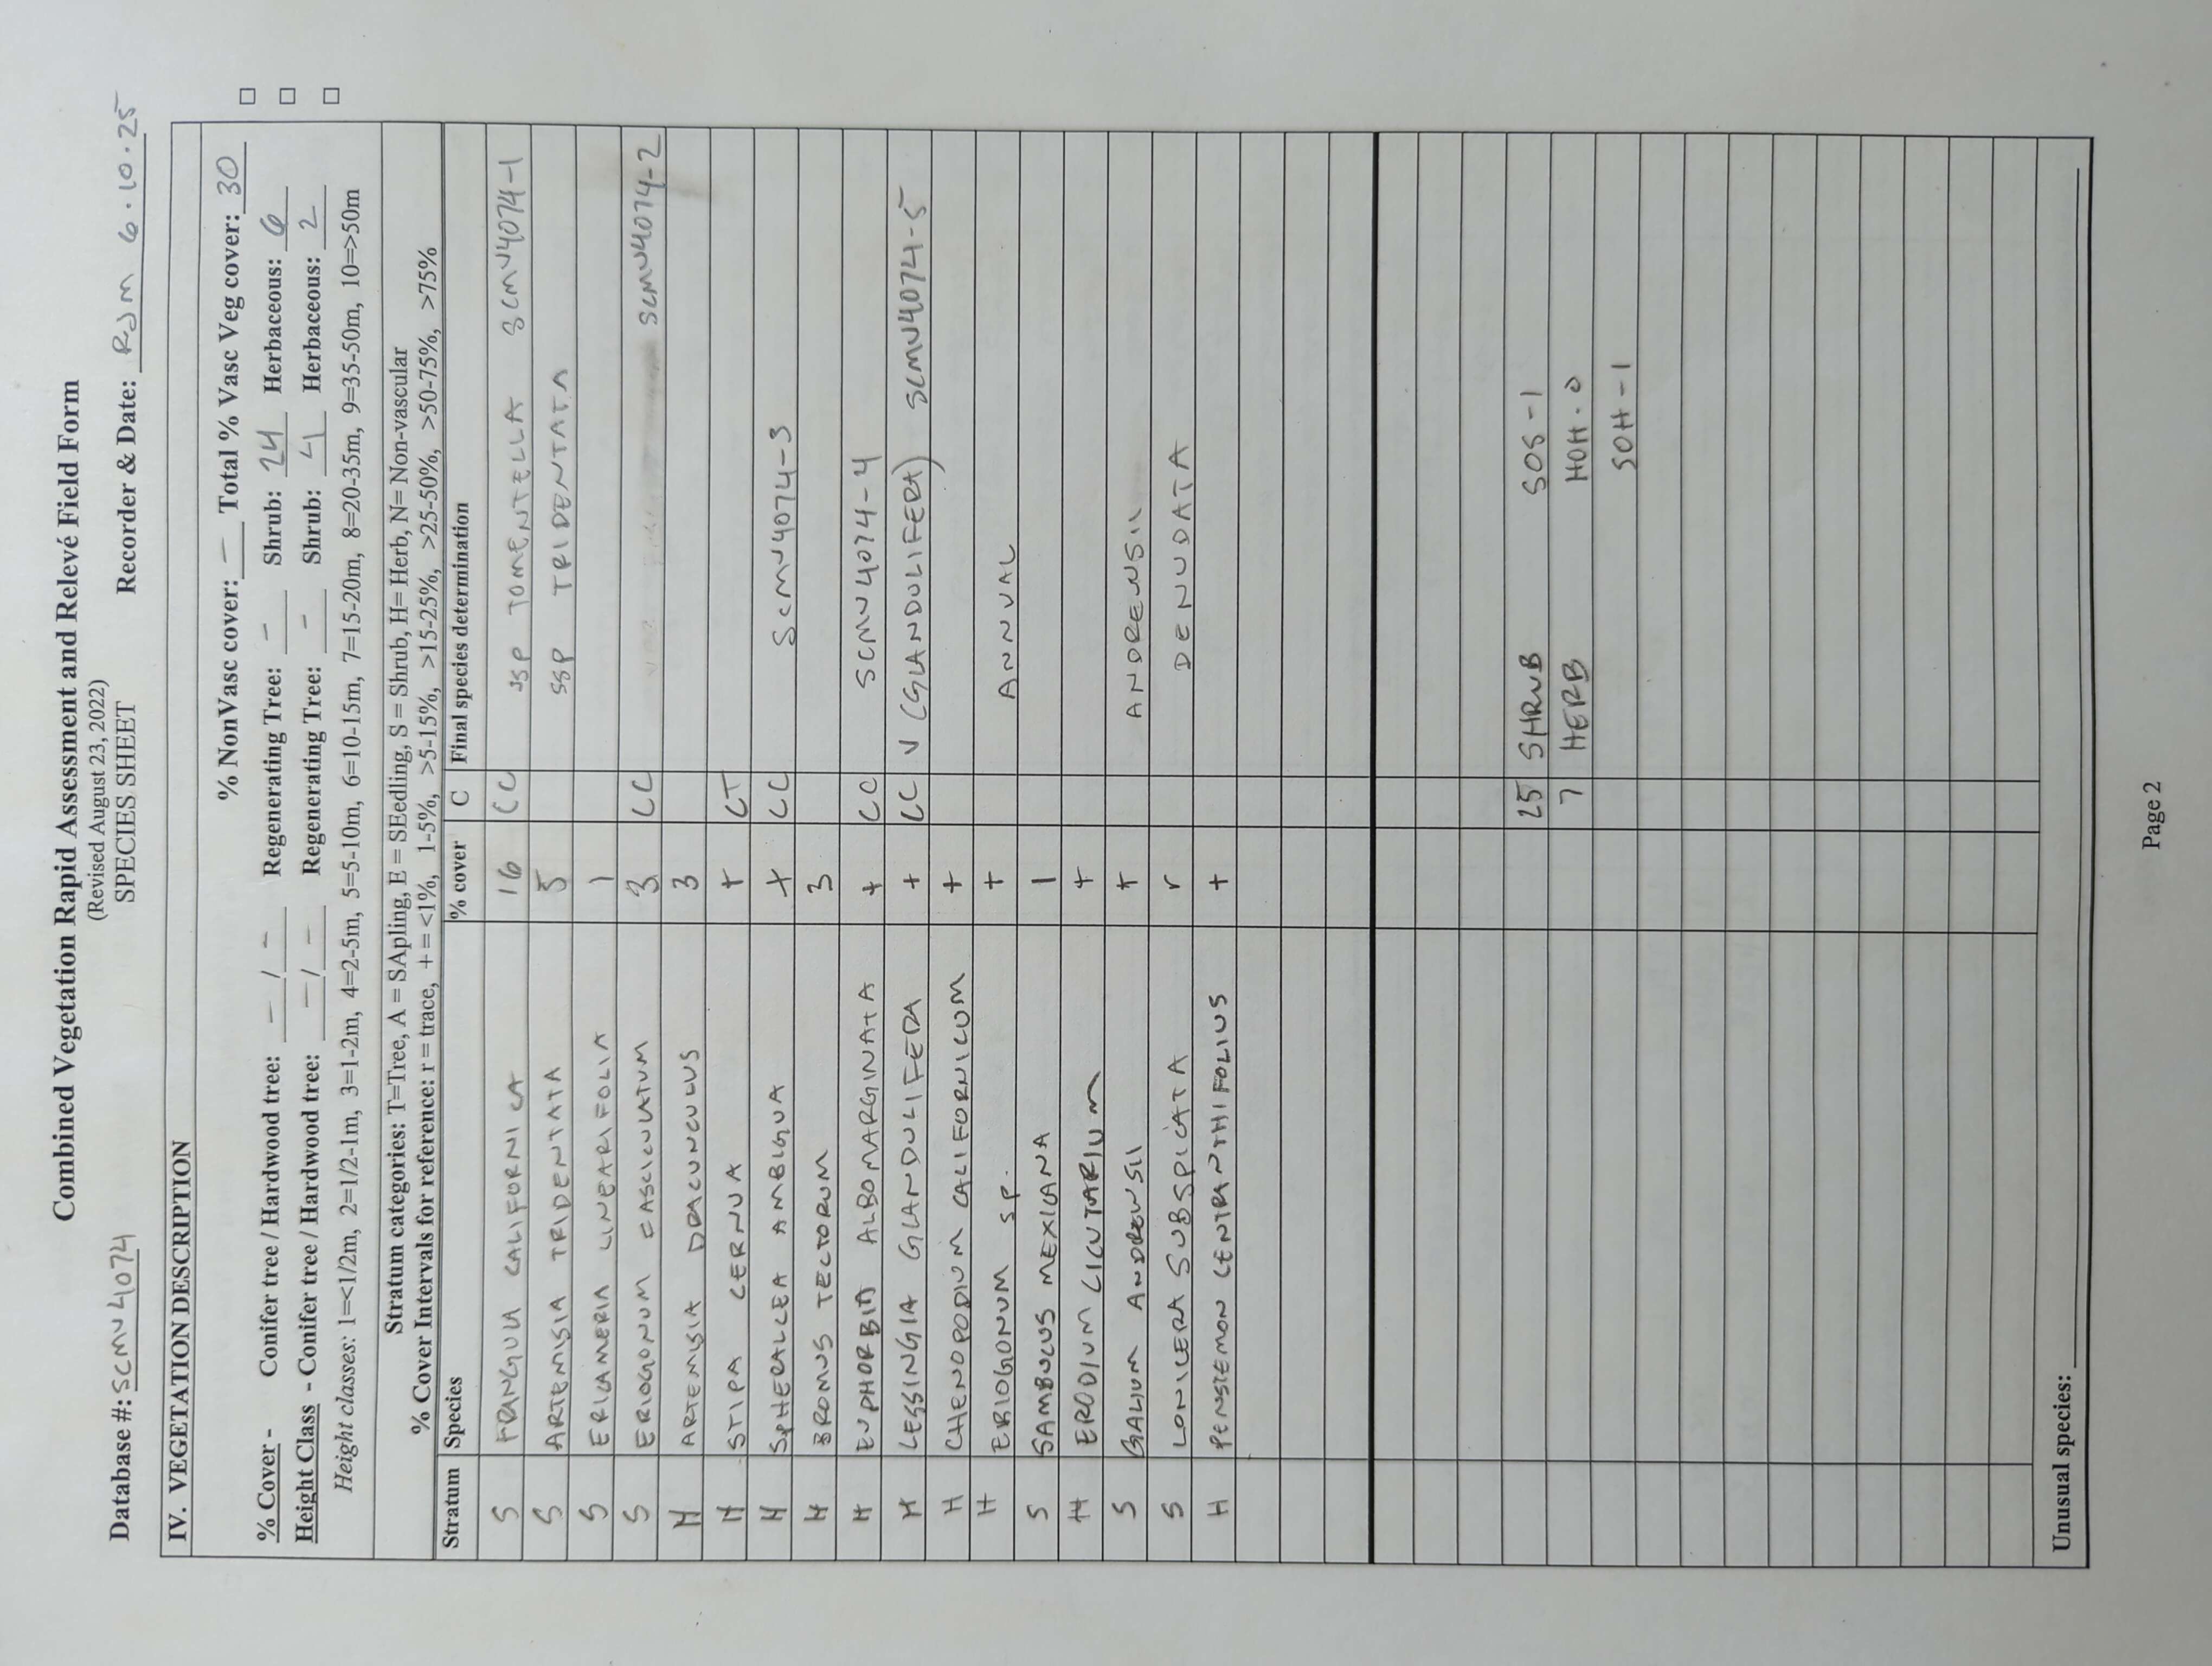 Combined Vegetation Rapid Assessment and Relevé Field Form
(Revised August 23, 2022)
SPECIES SHEET
Database #: SCMV4074 Recorder & Date: RJM 6.10.25
IV. VEGETATION DESCRIPTION
% NonVasc cover: – Total % Vasc Veg cover: 30
% Cover - Conifer tree / Hardwood tree: – / – Regenerating Tree: – Shrub: 24 Herbaceous: 6
Height Class - Conifer tree / Hardwood tree: – / – Regenerating Tree: – Shrub: 4 Herbaceous: 2
Height classes: 1=<1/2m, 2=1/2-1m, 3=1-2m, 4=2-5m, 5=5-10m, 6=10-15m, 7=15-20m, 8=20-35m, 9=35-50m, 10=>50m
Stratum categories: T=Tree, A = SApling, E = SEedling, S = Shrub, H= Herb, N= Non-vascular
% Cover Intervals for reference: r = trace, + = <1%, 1-5%, >5-15%, >15-25%, >25-50%, >50-75%, >75%
Stratum Species % cover C Final species determination
S FRANGULA CALIFORNICA 16 CC SSP TOMENTELLA SCMV4074-1
S ARTEMISIA TRIDENTATA 5 SSP TRIDENTATA
S ERICAMERIA LINEARIFOLIA 1
S ERIOGONUM FASCICULATUM 3 CC SCMV4074-2
H ARTEMISIA DRACUNCULUS 3
H STIPA CERNUA + CT
H SPHERALCEA AMBIGUA + CC SCMV4074-3
H BROMUS TECTORUM 3
H EUPHORBIA ALBOMARGINATA + CC SCMV4074-4
H LESSINGIA GLANDULIFERA + CC V (GLANDULIFERA) SCMV4074-5
H CHENOPODIUM CALIFORNICUM +
H ERIOGONUM SP. + ANNUAL
S SAMBUCUS MEXICANA 1
H ERODIUM CICUTARIUM +
S GALIUM ANDREWSII + ANDREWSII
S LONICERA SUBSPICATA r DENUDATA
H PENSTEMON CENTRANTHIFOLIUS +
25 SHRUB SOS-1
7 HERB HOH-0
SOH-1
Unusual species:
Page 2